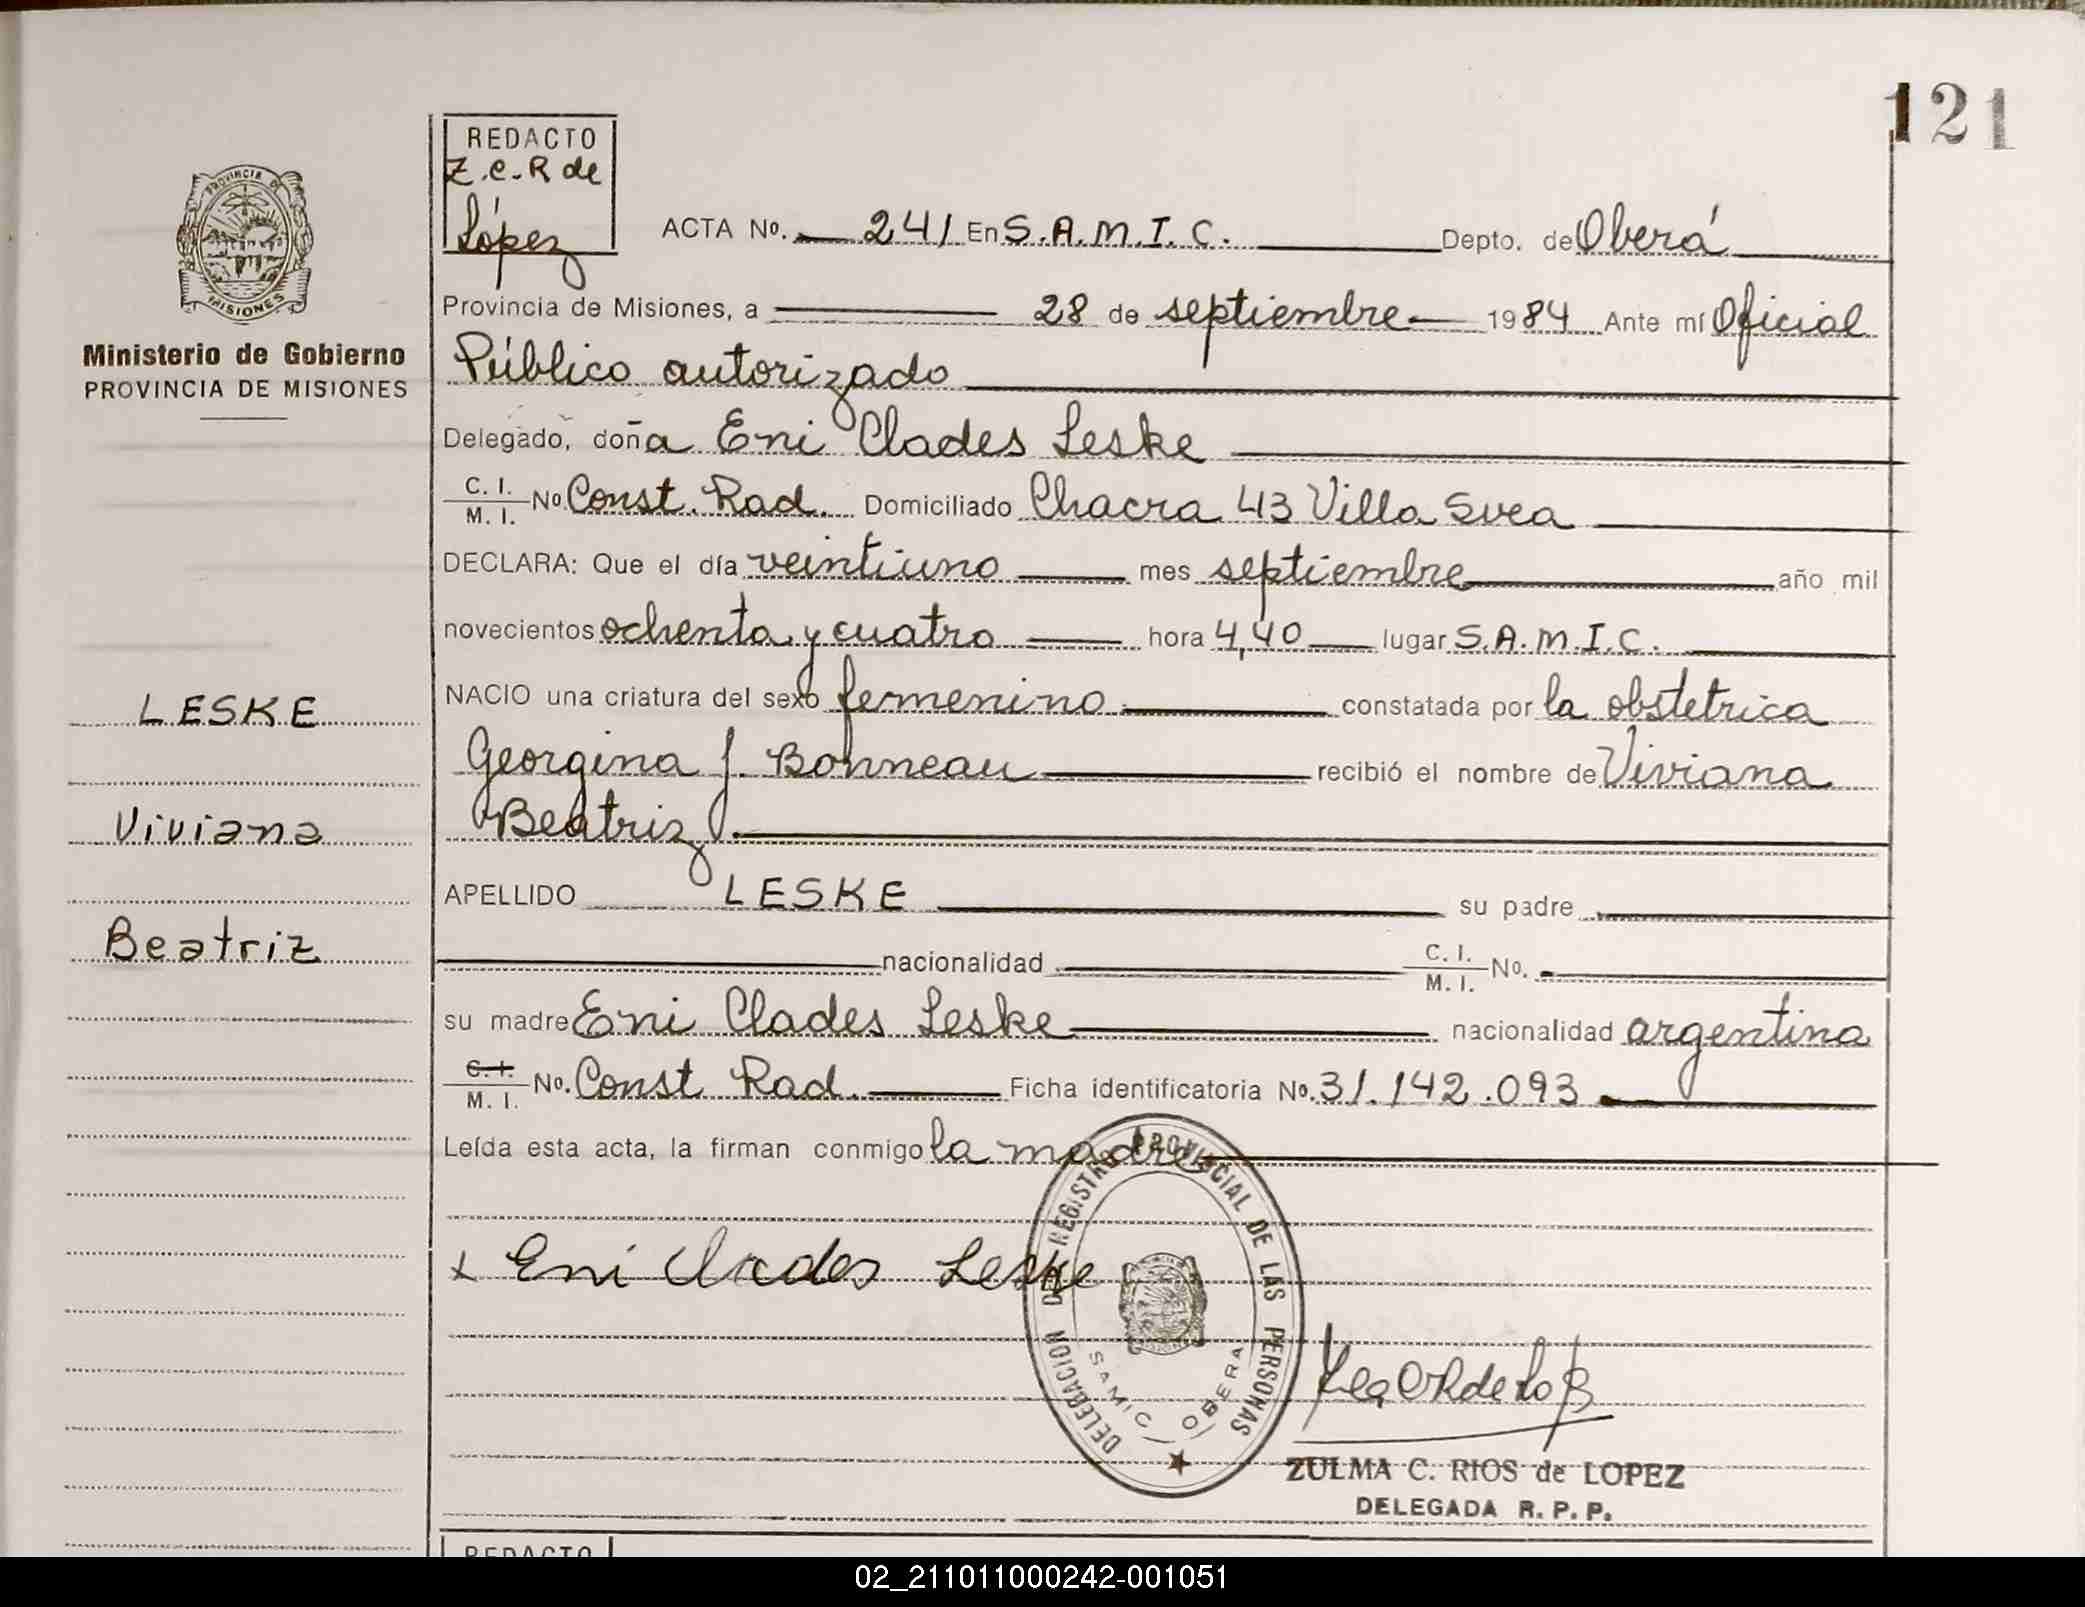 121
REDACTO
Z.C.R de
López
PROVINCIA DE
MISIONES
Ministerio de Gobierno
PROVINCIA DE MISIONES
ACTA No. 241 En S.A.M.I.C. Depto. de Oberá
Provincia de Misiones, a 28 de septiembre 1984 Ante mí Oficial
Público autorizado
Delegado, doña Eni Clades Leske
C. I. / M. I. No Const. Rad. Domiciliado Chacra 43 Villa Svea
DECLARA: Que el día veintiuno mes septiembre año mil
novecientos ochenta y cuatro hora 4,40 lugar S.A.M.I.C.
NACIO una criatura del sexo femenino constatada por la obstetrica
Georgina J. Bonneau recibió el nombre de Viviana
Beatriz
APELLIDO LESKE su padre
nacionalidad C. I. / M. I. No.
su madre Eni Clades Leske nacionalidad argentina
C. I. / M. I. No. Const Rad. Ficha identificatoria No. 31.142.093
Leída esta acta, la firman conmigo la madre
LESKE
Viviana
Beatriz
x Eni Clades Leske
DELEGACION DEL REGISTRO PROVINCIAL DE LAS PERSONAS
SAMIC / OBERA
ZULMA C. RIOS de LOPEZ
DELEGADA R. P. P.
REDACTO
02_211011000242-001051